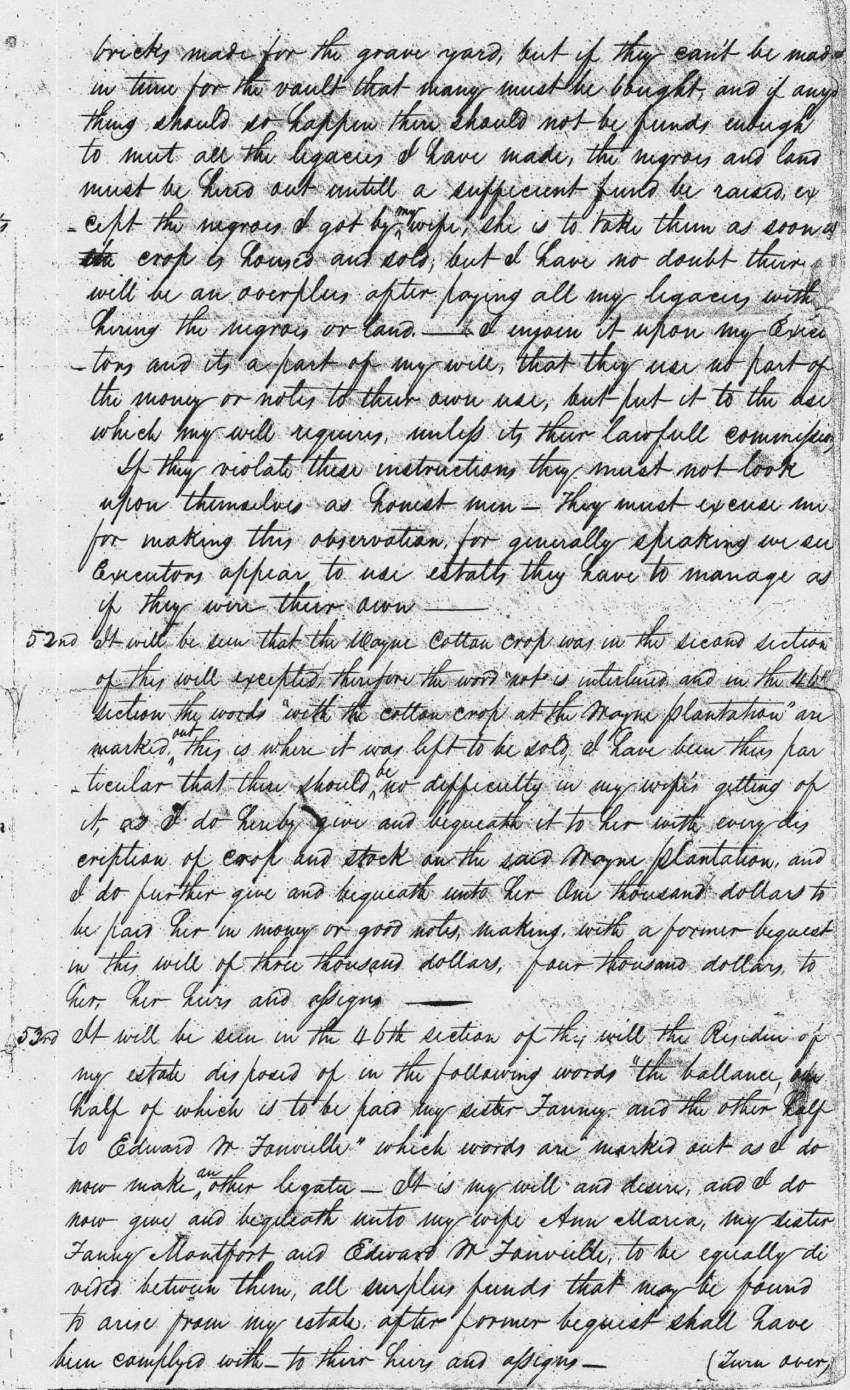 bricks made for the grave yard, but if they can't be made
in time for the vault that many must be bought, and if any
thing should so happen there should not be funds enough
to meet all the legacies I have made, the negroes and land
must be hired out untill a sufficient fund be raised, ex
-cept the negroes I got by my wife, she is to take them as soon as
the crop is housed and sold, but I have no doubt their
will be an overplus after paying all my legacies with
hiring the negroes or land. — I enjoin it upon my Execu
-tors and its a part of my will, that they use no part of
the money or notes to their own use, but put it to the use
which my will requires, unless its their lawfull commission
If they violate these instructions they must not look
upon themselves as honest men — They must excuse me
for making this observation, for generally speaking we see
Executors appear to use estates they have to manage as
if they were their own —
52nd It will be seen that the Wayne Cotton crop was in the second section
of this will excepted, therefore the word "not" is interlined and in the 46th
section the words "with the cotton crop at the Wayne plantation" are
marked out, this is where it was left to be sold, I have been thus par
-ticular that there should be no difficulty in my wife's getting of
it, as I do hereby give and bequeath it to her with every dis
cription of crop and stock on the said Wayne plantation, and
I do further give and bequeath unto her One thousand dollars to
be paid her in money or good notes, making, with a former bequest
in this will of three thousand dollars, four thousand dollars, to
her, her heirs and assigns —
53rd It will be seen in the 46th section of this will the Residue of
my estate disposed of in the following words "the ballance, one
half of which is to be paid my sister Fanny and the other half
to Edward W Fonville" which words are marked out as I do
now make an other legatee — It is my will and desire, and I do
now give and bequeath unto my wife Ann Maria, my sister
Fanny Montfort and Edward W Fonville, to be equally di
vided between them, all surplus funds that may be found
to arise from my estate, after former bequest shall have
been complyed with — to their heirs and assigns — (Turn over)